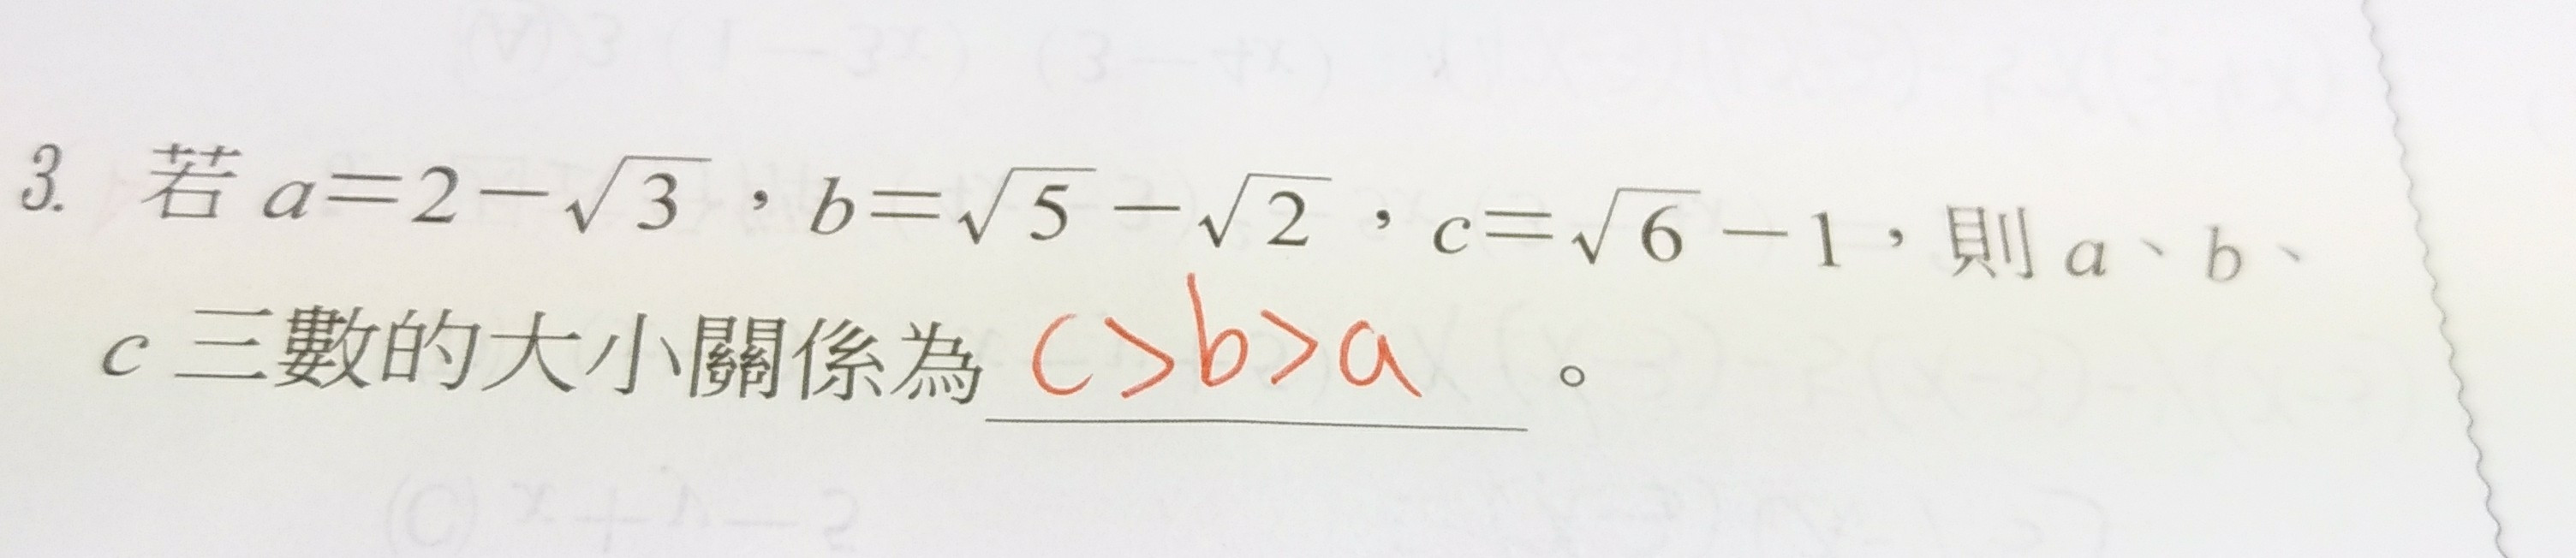 3. 若 a=2-√3，b=√5-√2，c=√6-1，則 a、b、
c 三數的大小關係為 c>b>a 。